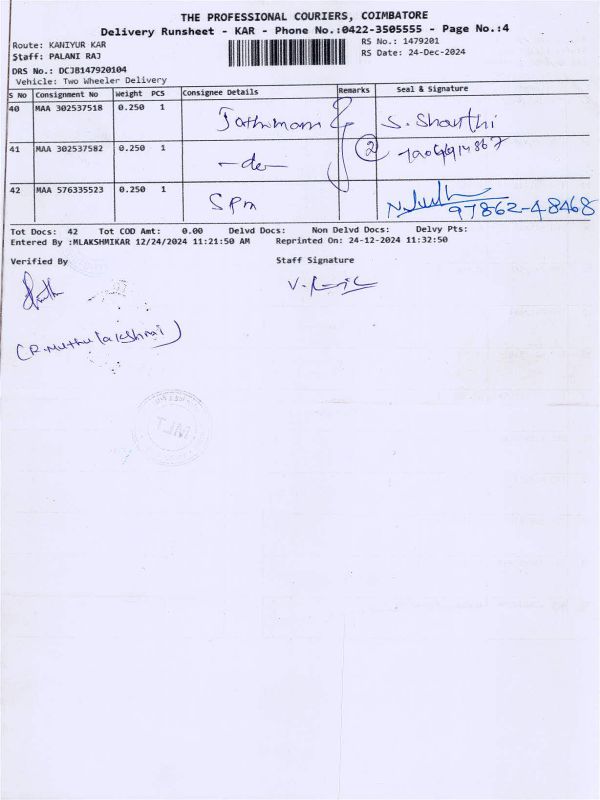 THE PROFESSIONAL COURIERS, COIMBATORE
Delivery Runsheet - KAR - Phone No.:0422-3505555 - Page No.:4
Route: KANIYUR KAR
RS No.: 1479201
Staff: PALANI RAJ
RS Date: 24-Dec-2024
DRS No.: DCJB147920104
Vehicle: Two Wheeler Delivery
S No Consignment No Weight PCS Consignee Details Remarks Seal & Signature
40 MAA 302537518 0.250 1 S. Shanthi
41 MAA 302537582 0.250 1 -do- 2
42 MAA 576335523 0.250 1 SPM 97862-48468
Tot Docs: 42 Tot COD Amt: 0.00 Delvd Docs: Non Delvd Docs: Delvy Pts:
Entered By :MLAKSHMIKAR 12/24/2024 11:21:50 AM Reprinted On: 24-12-2024 11:32:50
Verified By Staff Signature
(R. Muthulakshmi)